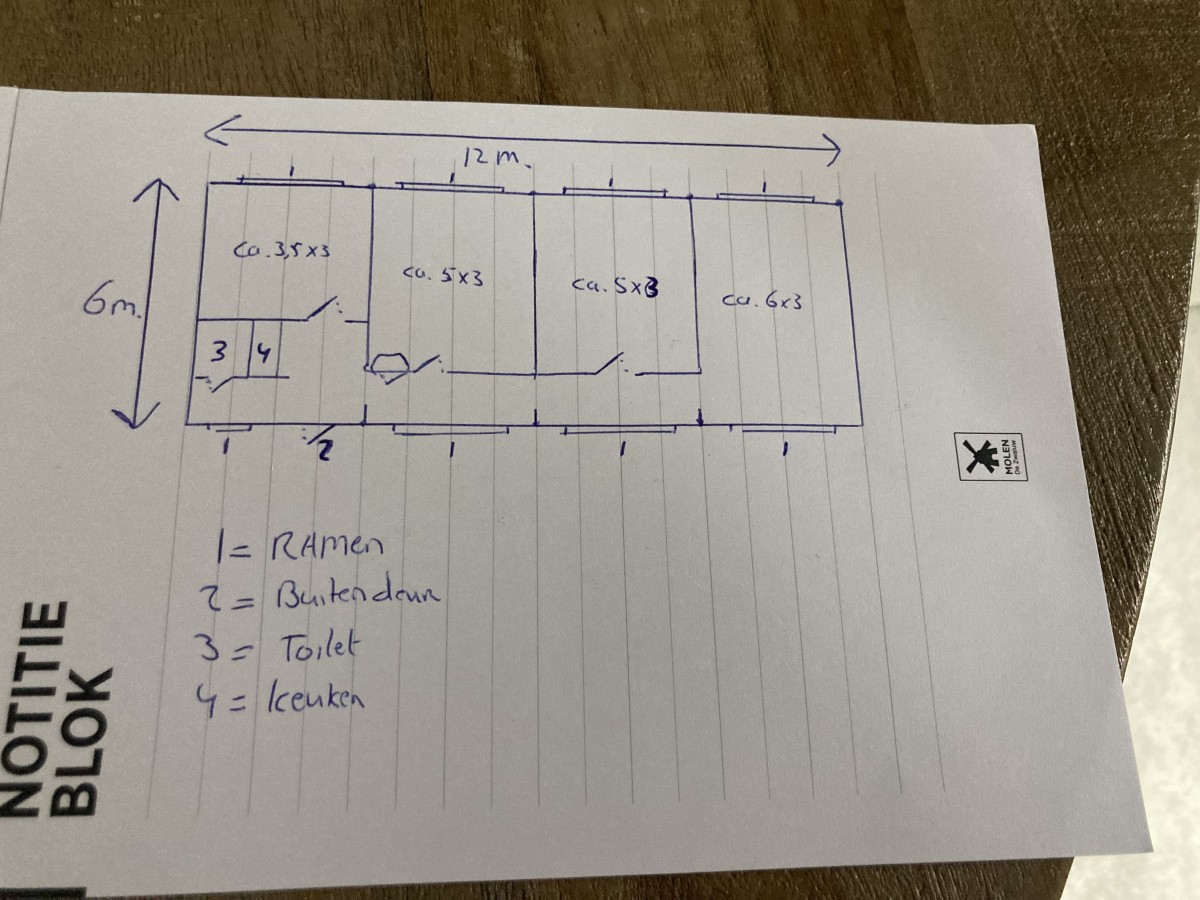 12 m.
1 1 1 1
6m.
ca. 3,5 x 3
ca. 5x3
ca. 5x3
ca. 6x3
3 4
1 2 1 1 1
1 = RAmen
2 = Buitendeur
3 = Toilet
4 = keuken
NOTITIE
BLOK
MOLEN
De Zwaluw